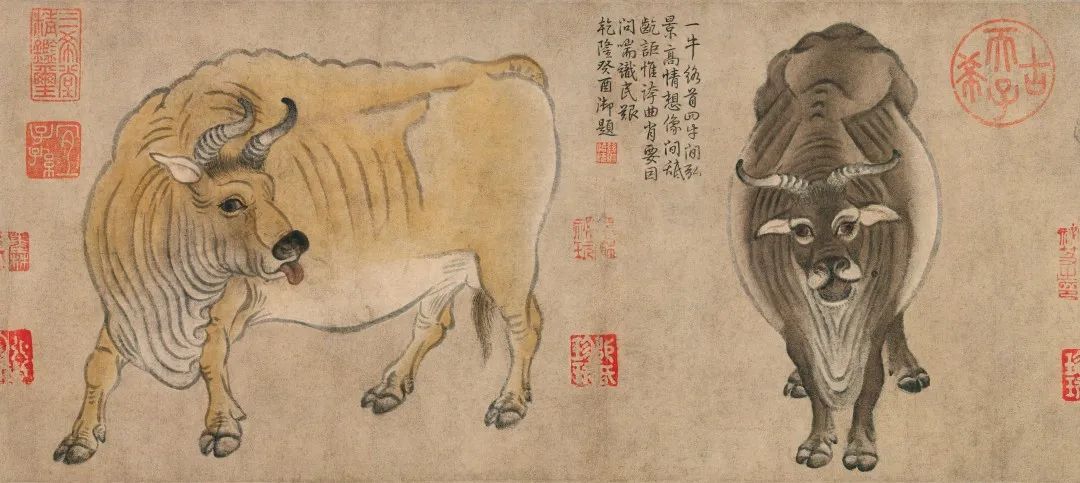 三希堂
精鑑璽
宜子孫
一牛絡首四牛閒弘
景高情想像間舐
齕詎惟誇曲肖要因
問喘識民艱
乾隆癸酉御題
古希天子